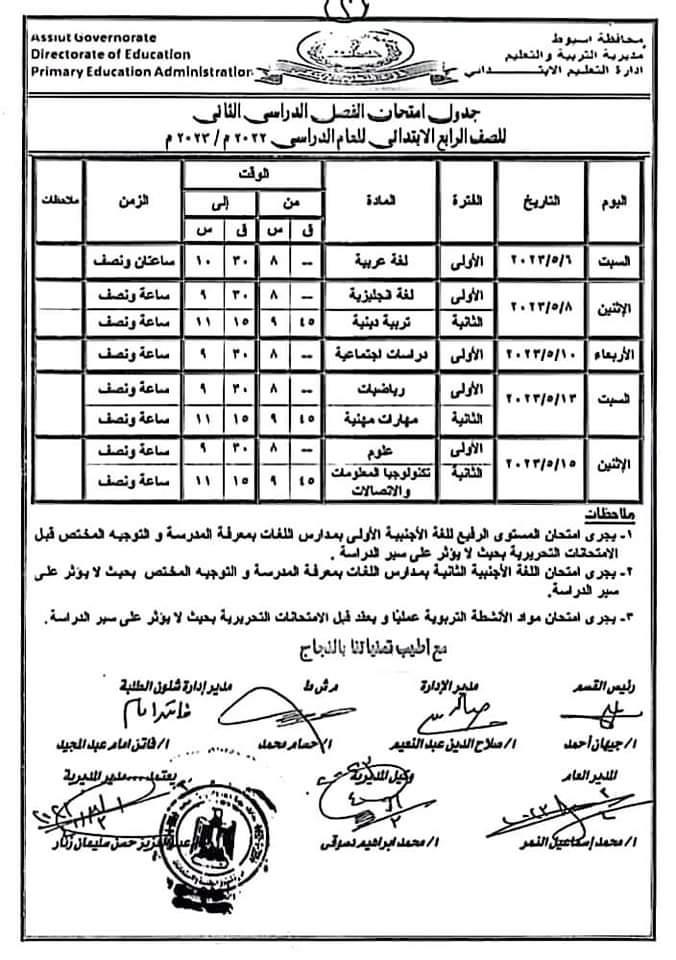 (٢)
Assiut Governorate
Directorate of Education
Primary Education Administration
محافظة أسيوط
مديرية التربية والتعليم
إدارة التعليم الابتدائي
جدول امتحان الفصل الدراسي الثاني
للصف الرابع الابتدائي للعام الدراسي ٢٠٢٢ م / ٢٠٢٣ م
اليوم التاريخ الفترة المادة الوقت الزمن ملاحظات
من إلى
ق س ق س
السبت ٢٠٢٣/٥/٦ الأولى لغة عربية -- ٨ ٣٠ ١٠ ساعتان ونصف
الإثنين ٢٠٢٣/٥/٨ الأولى لغة انجليزية -- ٨ ٣٠ ٩ ساعة ونصف
الثانية تربية دينية ٤٥ ٩ ١٥ ١١ ساعة ونصف
الأربعاء ٢٠٢٣/٥/١٠ الأولى دراسات اجتماعية -- ٨ ٣٠ ٩ ساعة ونصف
السبت ٢٠٢٣/٥/١٣ الأولى رياضيات -- ٨ ٣٠ ٩ ساعة ونصف
الثانية مهارات مهنية ٤٥ ٩ ١٥ ١١ ساعة ونصف
الإثنين ٢٠٢٣/٥/١٥ الأولى علوم -- ٨ ٣٠ ٩ ساعة ونصف
الثانية تكنولوجيا المعلومات والاتصالات ٤٥ ٩ ١٥ ١١ ساعة ونصف
ملاحظات
١- يجرى امتحان المستوى الرفيع للغة الأجنبية الأولى بمدارس اللغات بمعرفة المدرسة و التوجيه المختص قبل
الامتحانات التحريرية بحيث لا يؤثر على سير الدراسة .
٢- يجرى امتحان اللغة الأجنبية الثانية بمدارس اللغات بمعرفة المدرسة و التوجيه المختص بحيث لا يؤثر على
سير الدراسة.
٣- يجرى امتحان مواد الأنشطة التربوية عمليًا و يعقد قبل الامتحانات التحريرية بحيث لا يؤثر على سير الدراسة.
مع أطيب تمنياتنا بالنجاح
رئيس القسم مدير الإدارة م ش ط مدير إدارة شئون الطلبة
فاتن امام
أ/ جيهان أحمد أ/ صلاح الدين عبد النعيم أ/ حسام محمد أ/ فاتن امام عبد المجيد
المدير العام وكيل المديرية يعتمد مدير المديرية
أ/ محمد إسماعيل النمر أ/ محمد ابراهيم دسوقى حسن سليمان